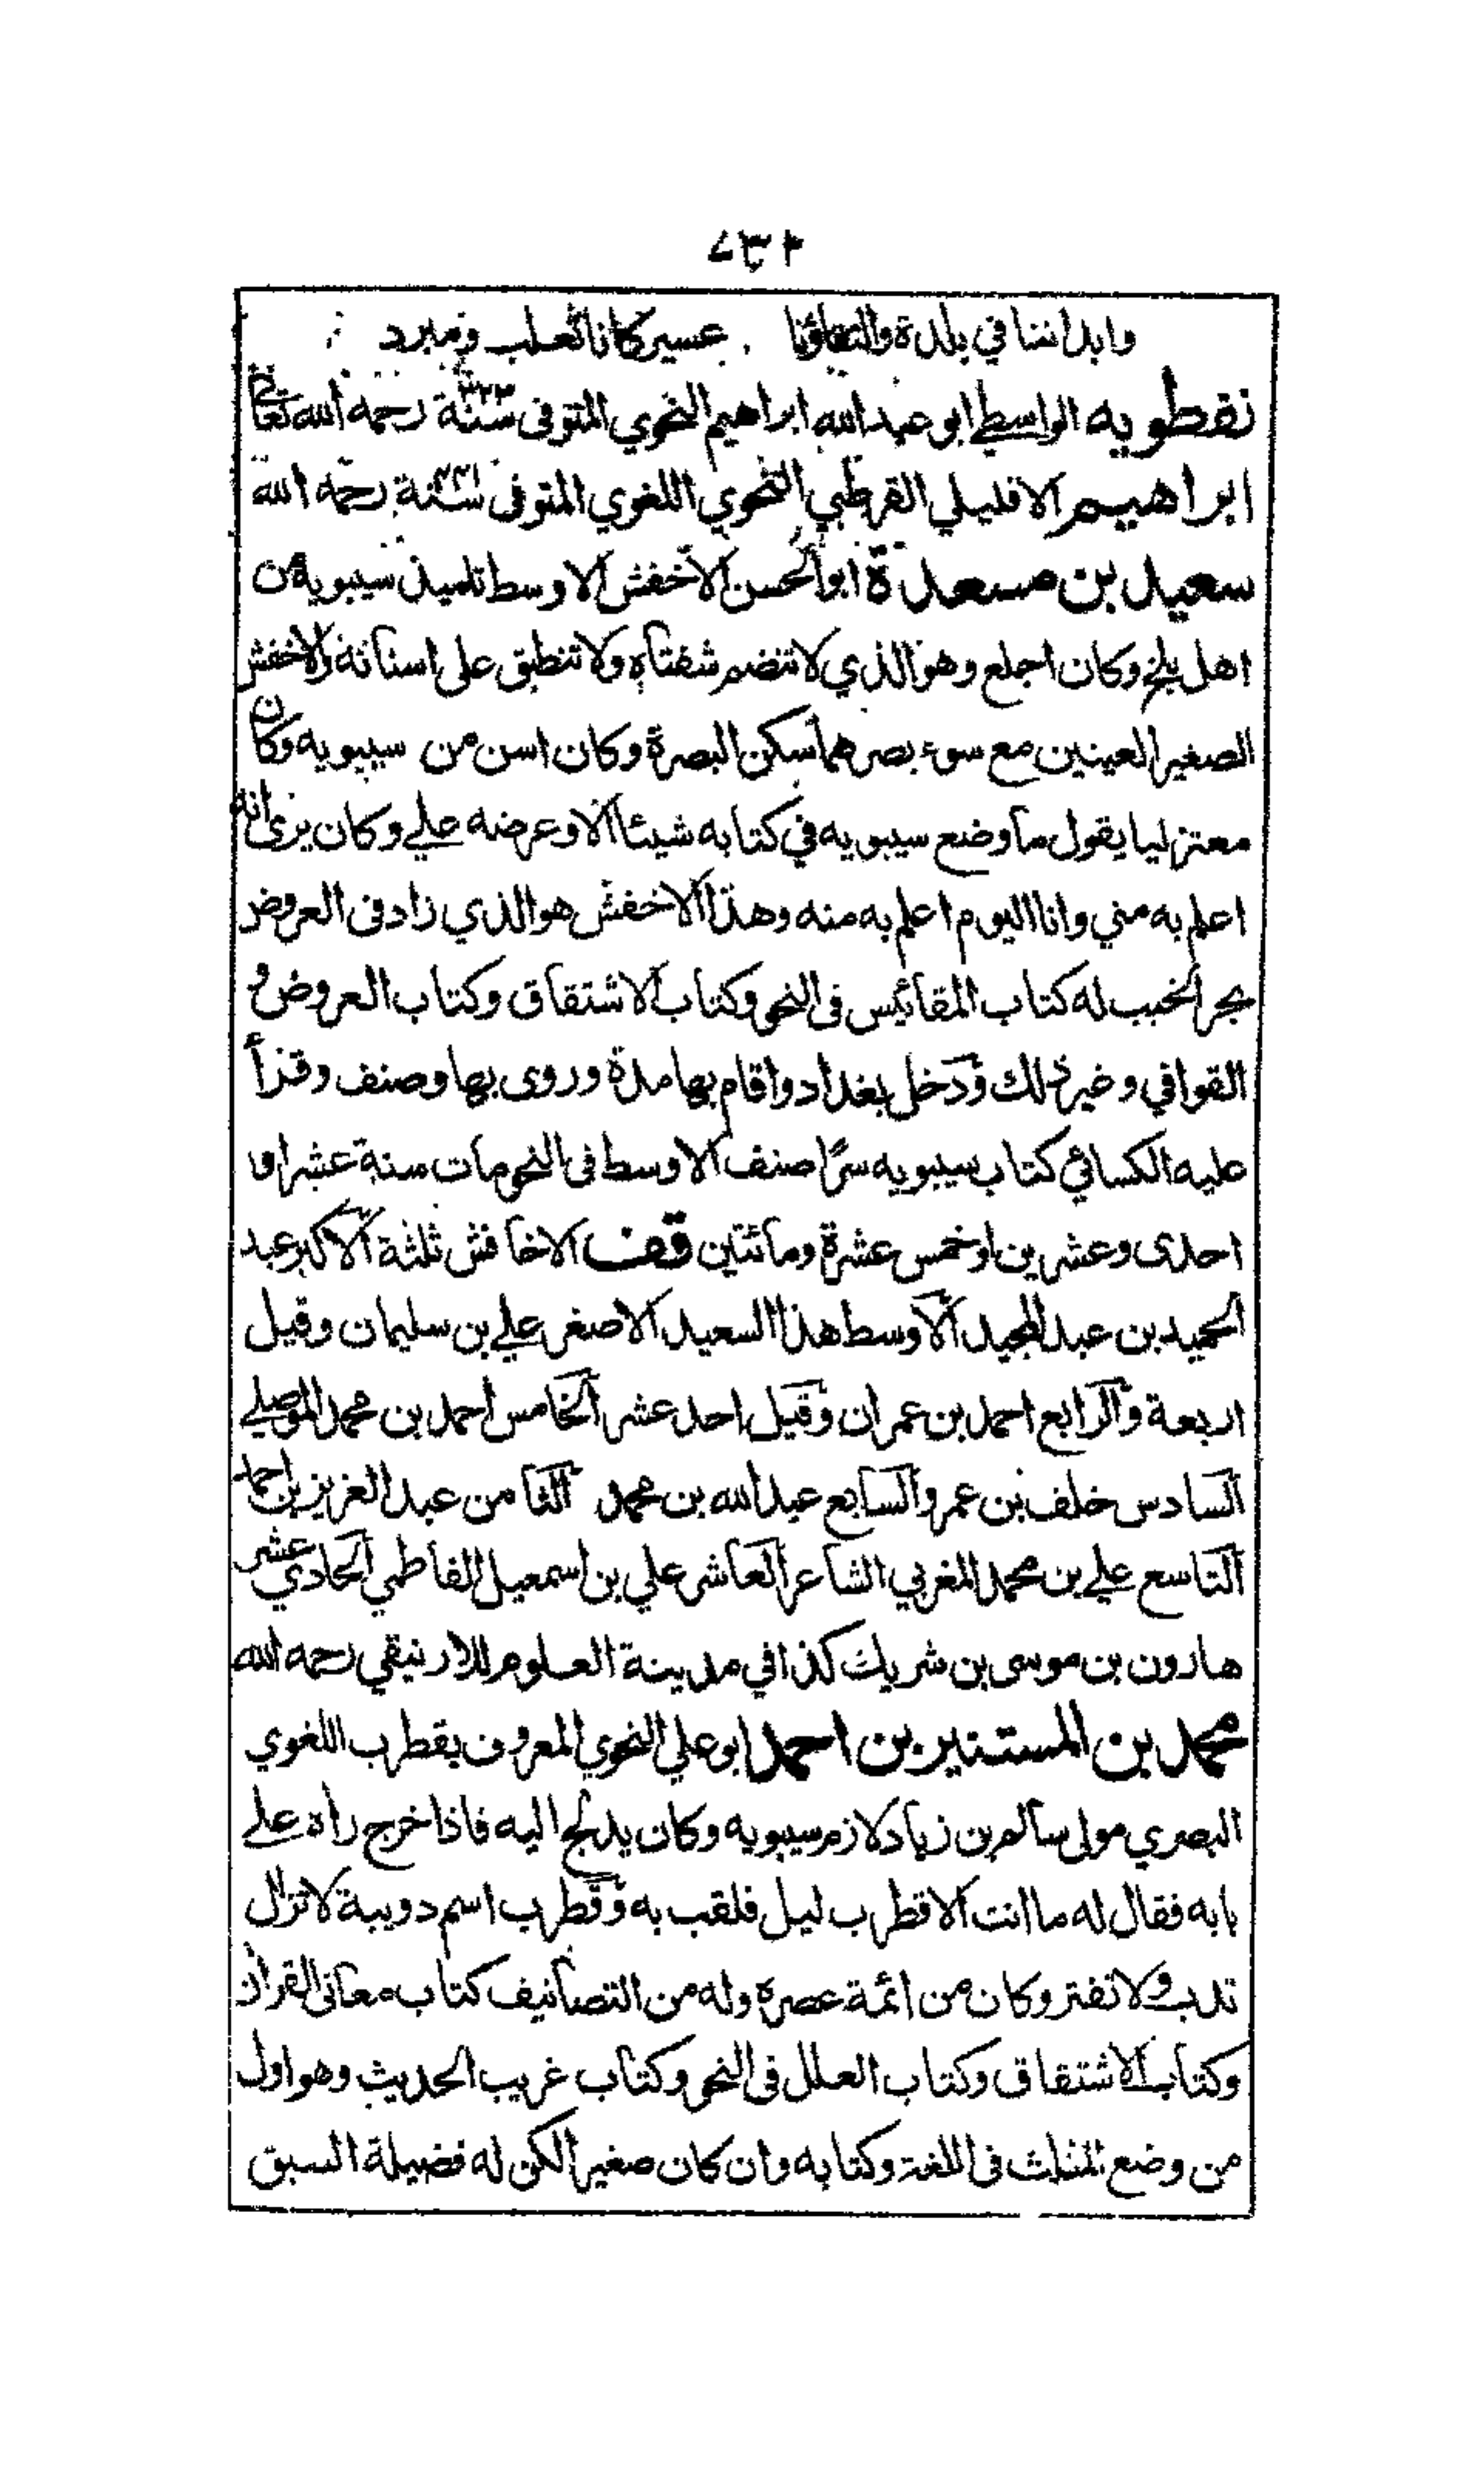 ٧٣٢
وابداننا في بلدة والتقاؤنا عسير كانا ثعلب ومبرد
نفطويه الواسطي ابو عبدالله ابراهيم النحوي المتوفى سنة ٣٢٣ رحمه الله تعالى
ابراهيم الافليلي القرطبي النحوي اللغوي المتوفى سنة رحمه الله
سعيد بن مسعدة ابوالحسن الاخفش الاوسط تلميذ سيبويه من
اهل بلخ وكان اجلع وهو الذي لا تنضم شفتاه ولا تنطبق على اسنانه والاخفش
الصغير العينين مع سوء بصرهما سكن البصرة وكان اسن من سيبويه وكان
معتزليا يقول ما وضع سيبويه في كتابه شيئا الا وعرضه علي وكان يرى انه
اعلم به مني وانا اليوم اعلم به منه وهذا الاخفش هو الذي زاد فى العروض
بحر الخبب له كتاب المقائيس فى النحو وكتاب الاشتقاق وكتاب العروض و
القوافي وغير ذلك ودخل بغداد واقام بها مدة وروى بها وصنف وقرأ
عليه الكسائي كتاب سيبويه سرًا صنف الاوسط فى النحو مات سنة عشر او
احدى وعشرين او خمس عشرة ومائتين قف الاخافش ثلثة الاكبر عبد
الحميد بن عبد المجيد الاوسط هذا السعيد الاصغر علي بن سليمان وقيل
اربعة والرابع احمد بن عمران وقيل احد عشر الخامس احمد بن محمد الموصلي
السادس خلف بن عمر والسابع عبد الله بن محمد الثامن عبد العزيز بن احمد
التاسع علي بن محمد المغربي الشاعر العاشر علي بن اسمعيل الفاطمي الحادي عشر
هارون بن موسى بن شريك كذا في مدينة العلوم للارنيقي رحمه الله
محمد بن المستنير بن احمد ابو علي النحوي المعروف بقطرب اللغوي
البصري مولى سالم بن زياد لازم سيبويه وكان يدلج اليه فاذا خرج راه علے
بابه فقال له ما انت الا قطرب ليل فلقب به وقطرب اسم دويبة لا تزال
تدب ولا تفتر وكان من ائمة عصره وله من التصانيف كتاب معانى القران
وكتاب الاشتقاق وكتاب العلل فى النحو وكتاب غريب الحديث وهو اول
من وضع المثلث فى اللغة وكتابه وان كان صغيرا لكن له فضيلة السبق